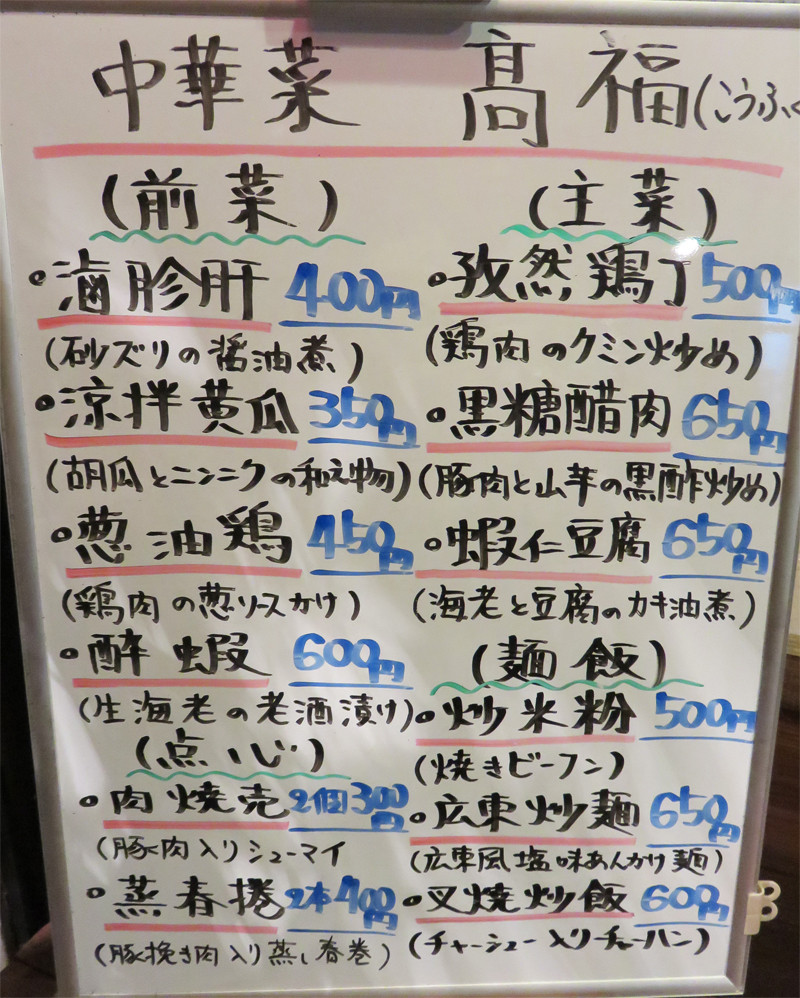 中華菜 髙福(こうふく
(前菜)
・滷胗肝 400円
(砂ズリの醤油煮)
・涼拌黄瓜 350円
(胡瓜とニンニクの和え物)
・葱油鶏 450円
(鶏肉の葱ソースかけ)
・酔蝦 600円
(生海老の老酒漬け)
(点心)
・肉焼売 2個300円
(豚肉入りシューマイ
・蒸春捲 2本400円
(豚挽き肉入り蒸し春巻)
(主菜)
・孜然鶏丁 500円
(鶏肉のクミン炒め)
・黒糖醋肉 650円
(豚肉と山芋の黒酢炒め)
・蝦仁豆腐 650円
(海老と豆腐のカキ油煮)
(麺飯)
・炒米粉 500円
(焼きビーフン)
・広東炒麺 650円
(広東風塩味あんかけ麺)
・叉焼炒飯 600円
(チャーシュー入りチャーハン)